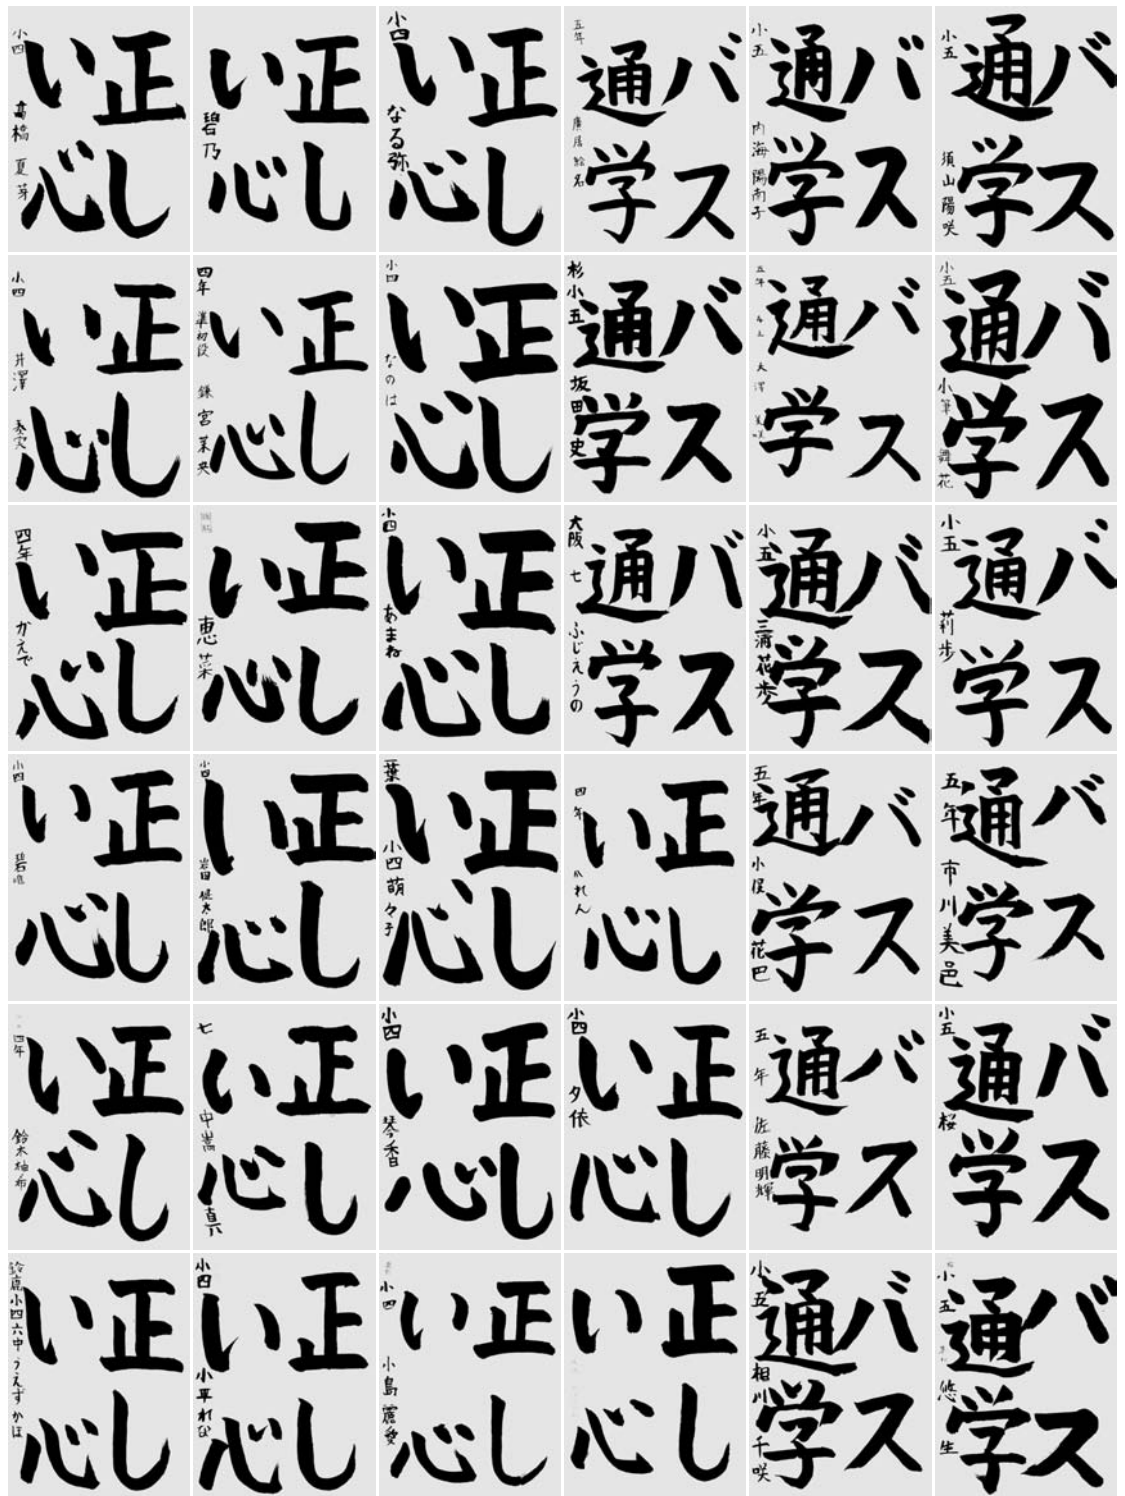 正しい心
小四
高橋夏芽
正しい心
碧乃
正しい心
小四
なる弥
バス通学
五年
バス通学
小五
内海陽南子
バス通学
小五
須山陽咲
正しい心
小四
井澤
正しい心
四年
準初段
鎌宮菜央
正しい心
小四
なのは
バス通学
杉小五
坂田史
バス通学
五年
バス通学
小五
小筆舞花
正しい心
四年
かえで
正しい心
恵菜
正しい心
小四
あまね
バス通学
大阪
七
ふじえうの
バス通学
小五
三浦花歩
バス通学
小五
莉歩
正しい心
小四
碧唯
正しい心
小四
岩田健太郎
正しい心
葉
小四
萌々子
正しい心
四年
かれん
バス通学
五年
小俣花巴
バス通学
五年
市川美邑
正しい心
四年
鈴木柚希
正しい心
七
中嵩真
正しい心
小四
琴香
正しい心
小四
夕依
バス通学
五年
佐藤明輝
バス通学
小五
桜
正しい心
鈴鹿小四六中うえずかほ
正しい心
小四
小平れな
正しい心
小四
小島麗愛
正しい心
バス通学
小五
相川千咲
バス通学
小五
悠生